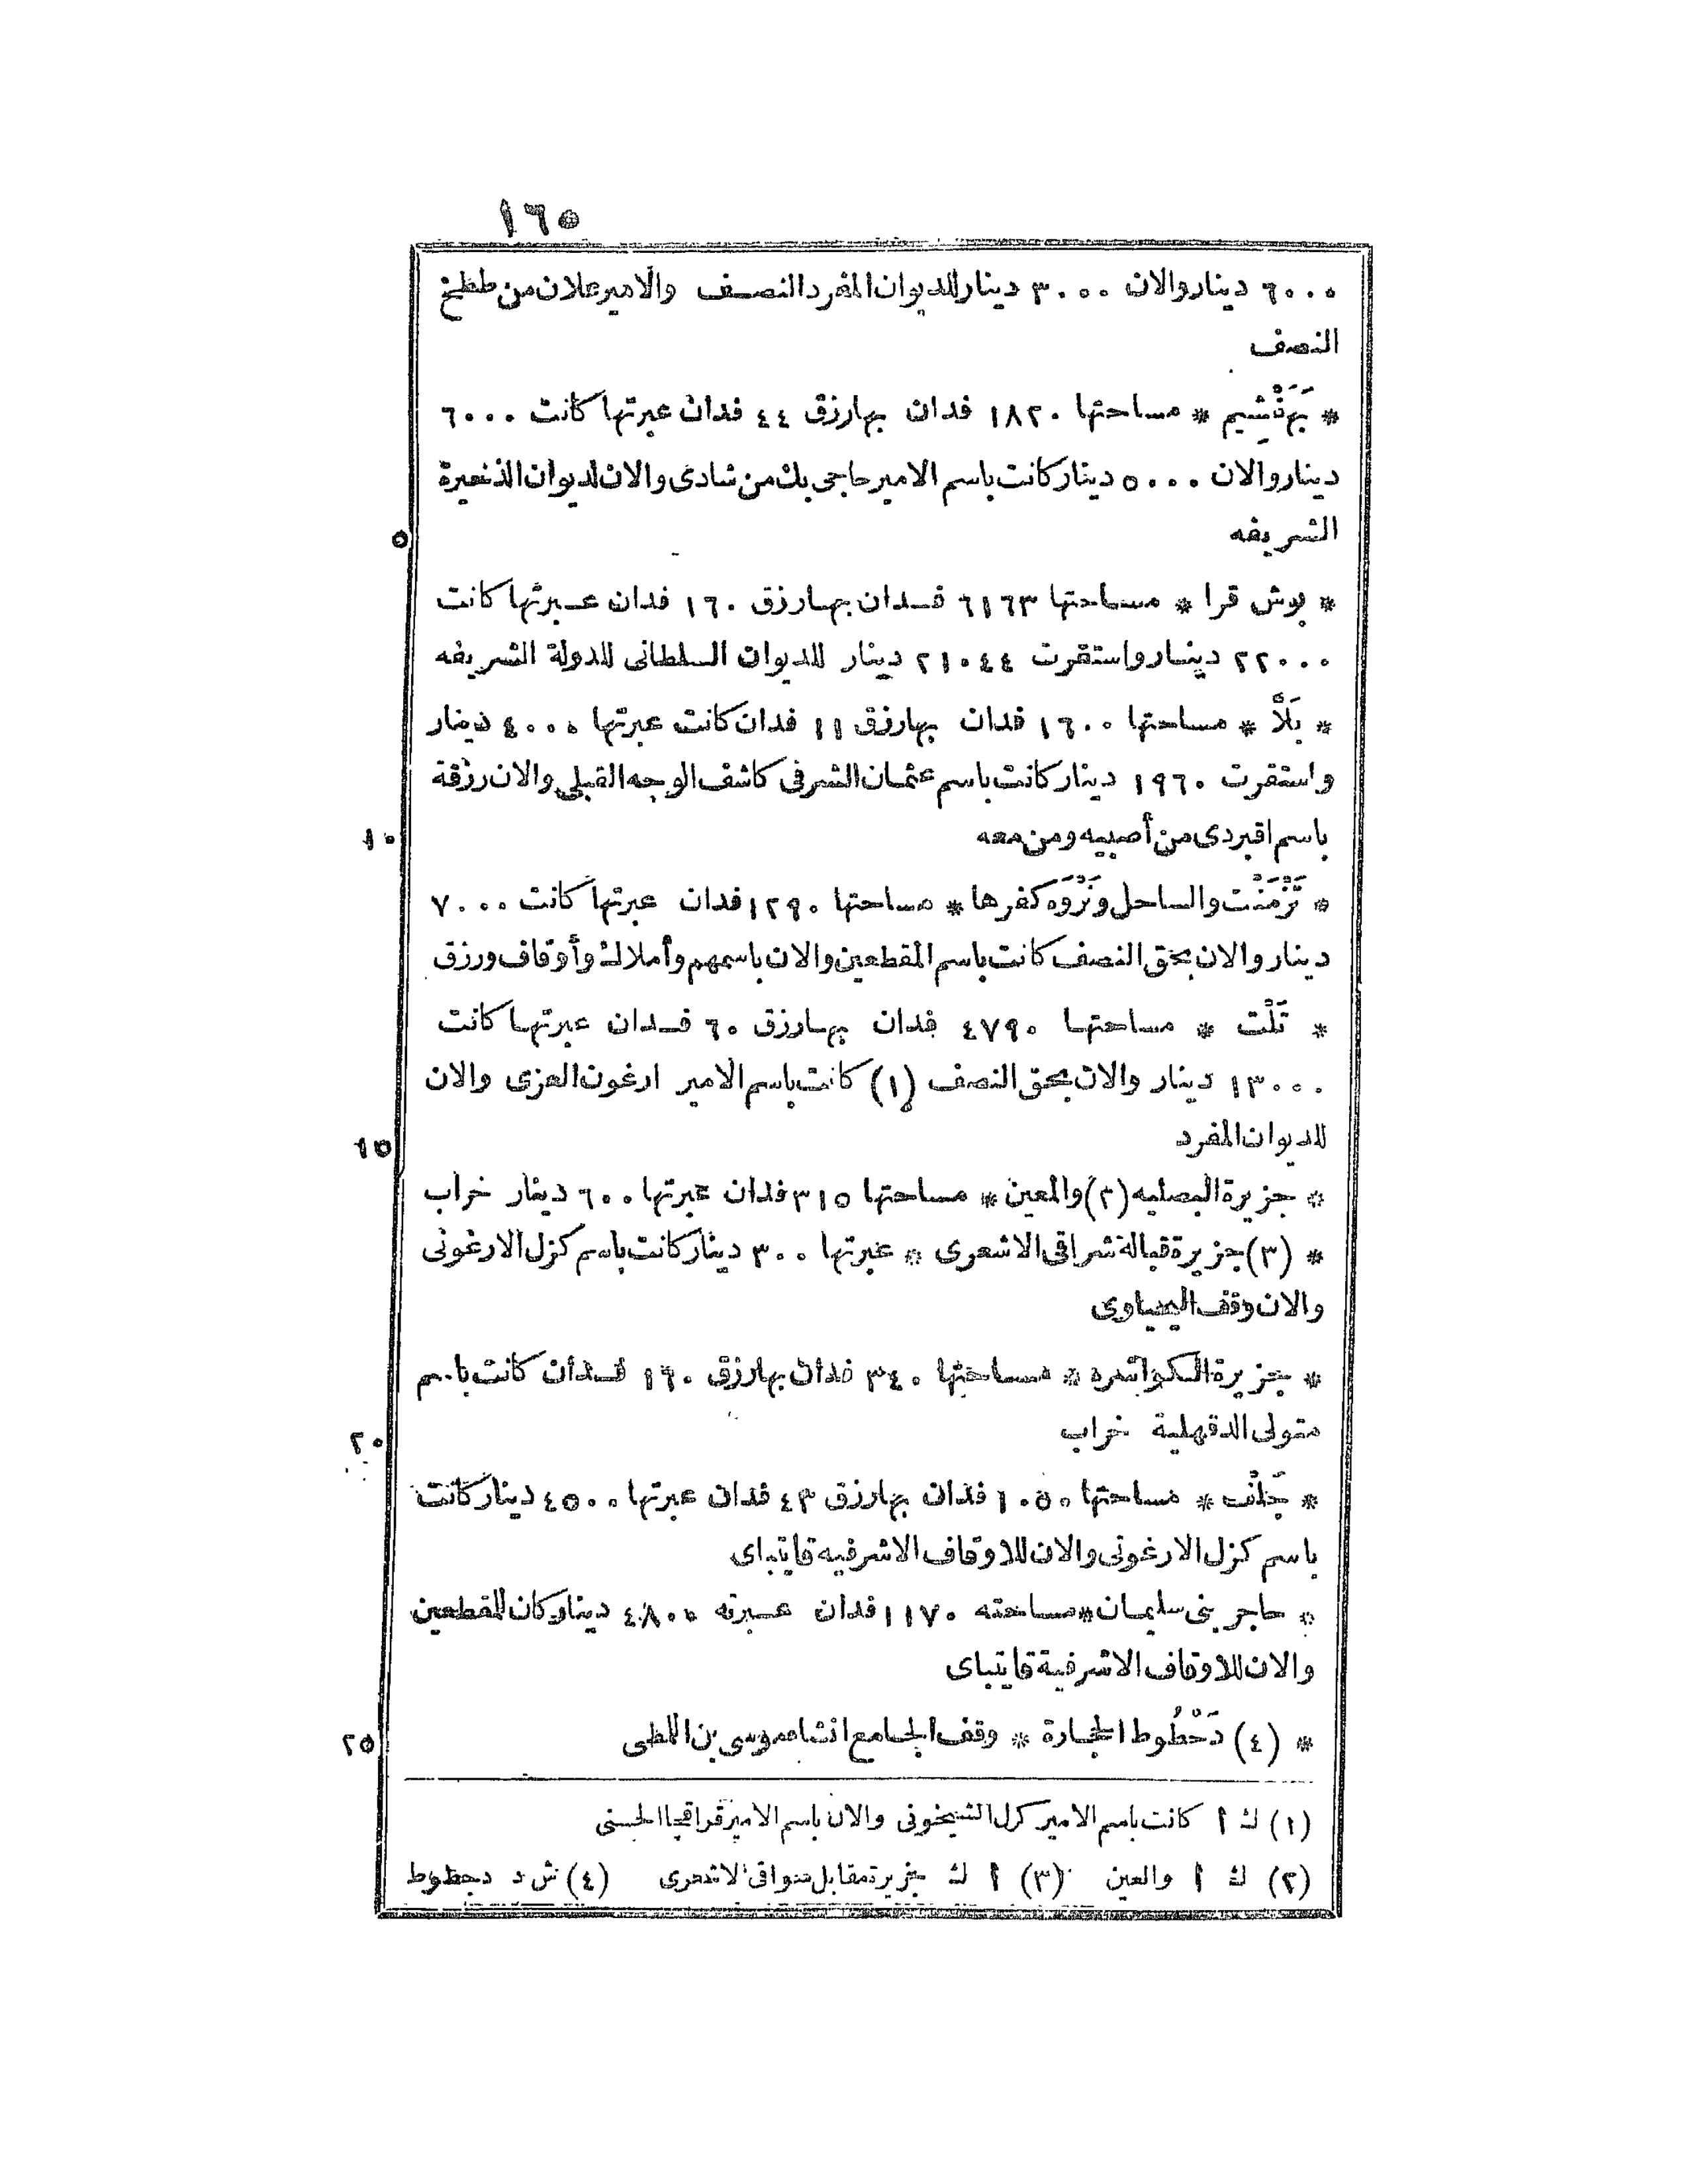 ١٦٥
٦٠٠٠ دينار والان ٣٠٠٠ دينار للديوان المفرد النصف والامير علان من ططخ
النصف
* بَهَنْشِيم * مساحتها ١٨٢٠ فدان بها رزق ٤٤ فدان عبرتها كانت ٦٠٠٠
دينار والان ٥٠٠٠ دينار كانت باسم الامير حاجى بك من شادى والان لديوان الذخيرة
٥ الشريفه
* بوش قرا * مساحتها ٦١٦٣ فدان بها رزق ١٦٠ فدان عبرتها كانت
٢٢٠٠٠ دينار واستقرت ٢١٠٤٤ دينار للديوان السلطانى للدولة الشريفه
* بَلَاّ * مساحتها ١٦٠٠ فدان بها رزق ١١ فدان كانت عبرتها ٤٠٠٠ دينار
واستقرت ١٩٦٠ دينار كانت باسم عثمان الشرفى كاشف الوجه القبلى والان رزقة
١٠ باسم اقبردى من أصبيه ومن معه
* تَزْمَنْت والساحل ونَزْوَه كفرها * مساحتها ١٢٩٠ فدان عبرتها كانت ٧٠٠٠
دينار والان بحق النصف كانت باسم المقطعين والان باسمهم وأملاك وأوقاف ورزق
* تَلْت * مساحتها ٤٧٩٠ فدان بها رزق ٦٠ فدان عبرتها كانت
١٣٠٠٠ دينار والان بحق النصف (١) كانت باسم الامير ارغون العزى والان
١٥ للديوان المفرد
* جزيرة البصليه (٢) والمعين * مساحتها ٣١٥ فدان عبرتها ٦٠٠ دينار خراب
* (٣) جزيرة قبالة شراقى الاشعرى * عبرتها ٣٠٠ دينار كانت باسم كزل الارغونى
والان وقف اليحياوى
* جزيرة * مساحتها ٣٤٠ فدان بها رزق ١٦٠ فدان كانت باسم
٢٠ متولى الدقهلية خراب
* جَلْت * مساحتها ١٠٥٠ فدان بها رزق ٤٣ فدان عبرتها ٤٥٠٠ دينار كانت
باسم كزل الارغونى والان للاوقاف الاشرفيه قايتباى
* حاجر بنى سليمان * مساحته ١١٧٠ فدان عبرته ٤٨٠٠ دينار كان للمقطعين
والان للاوقاف الاشرفية قايتباى
٢٥ * (٤) دَحْطُوط الحجارة * وقف الجامع انشاه موسى بن
(١) ك أ كانت باسم الامير كزل الشيخونى والان باسم الامير قراقجا الحسنى
(٢) ك أ والعين (٣) أ ك جزيرة مقابل سواقى الاشعرى (٤) ش د دجطوط